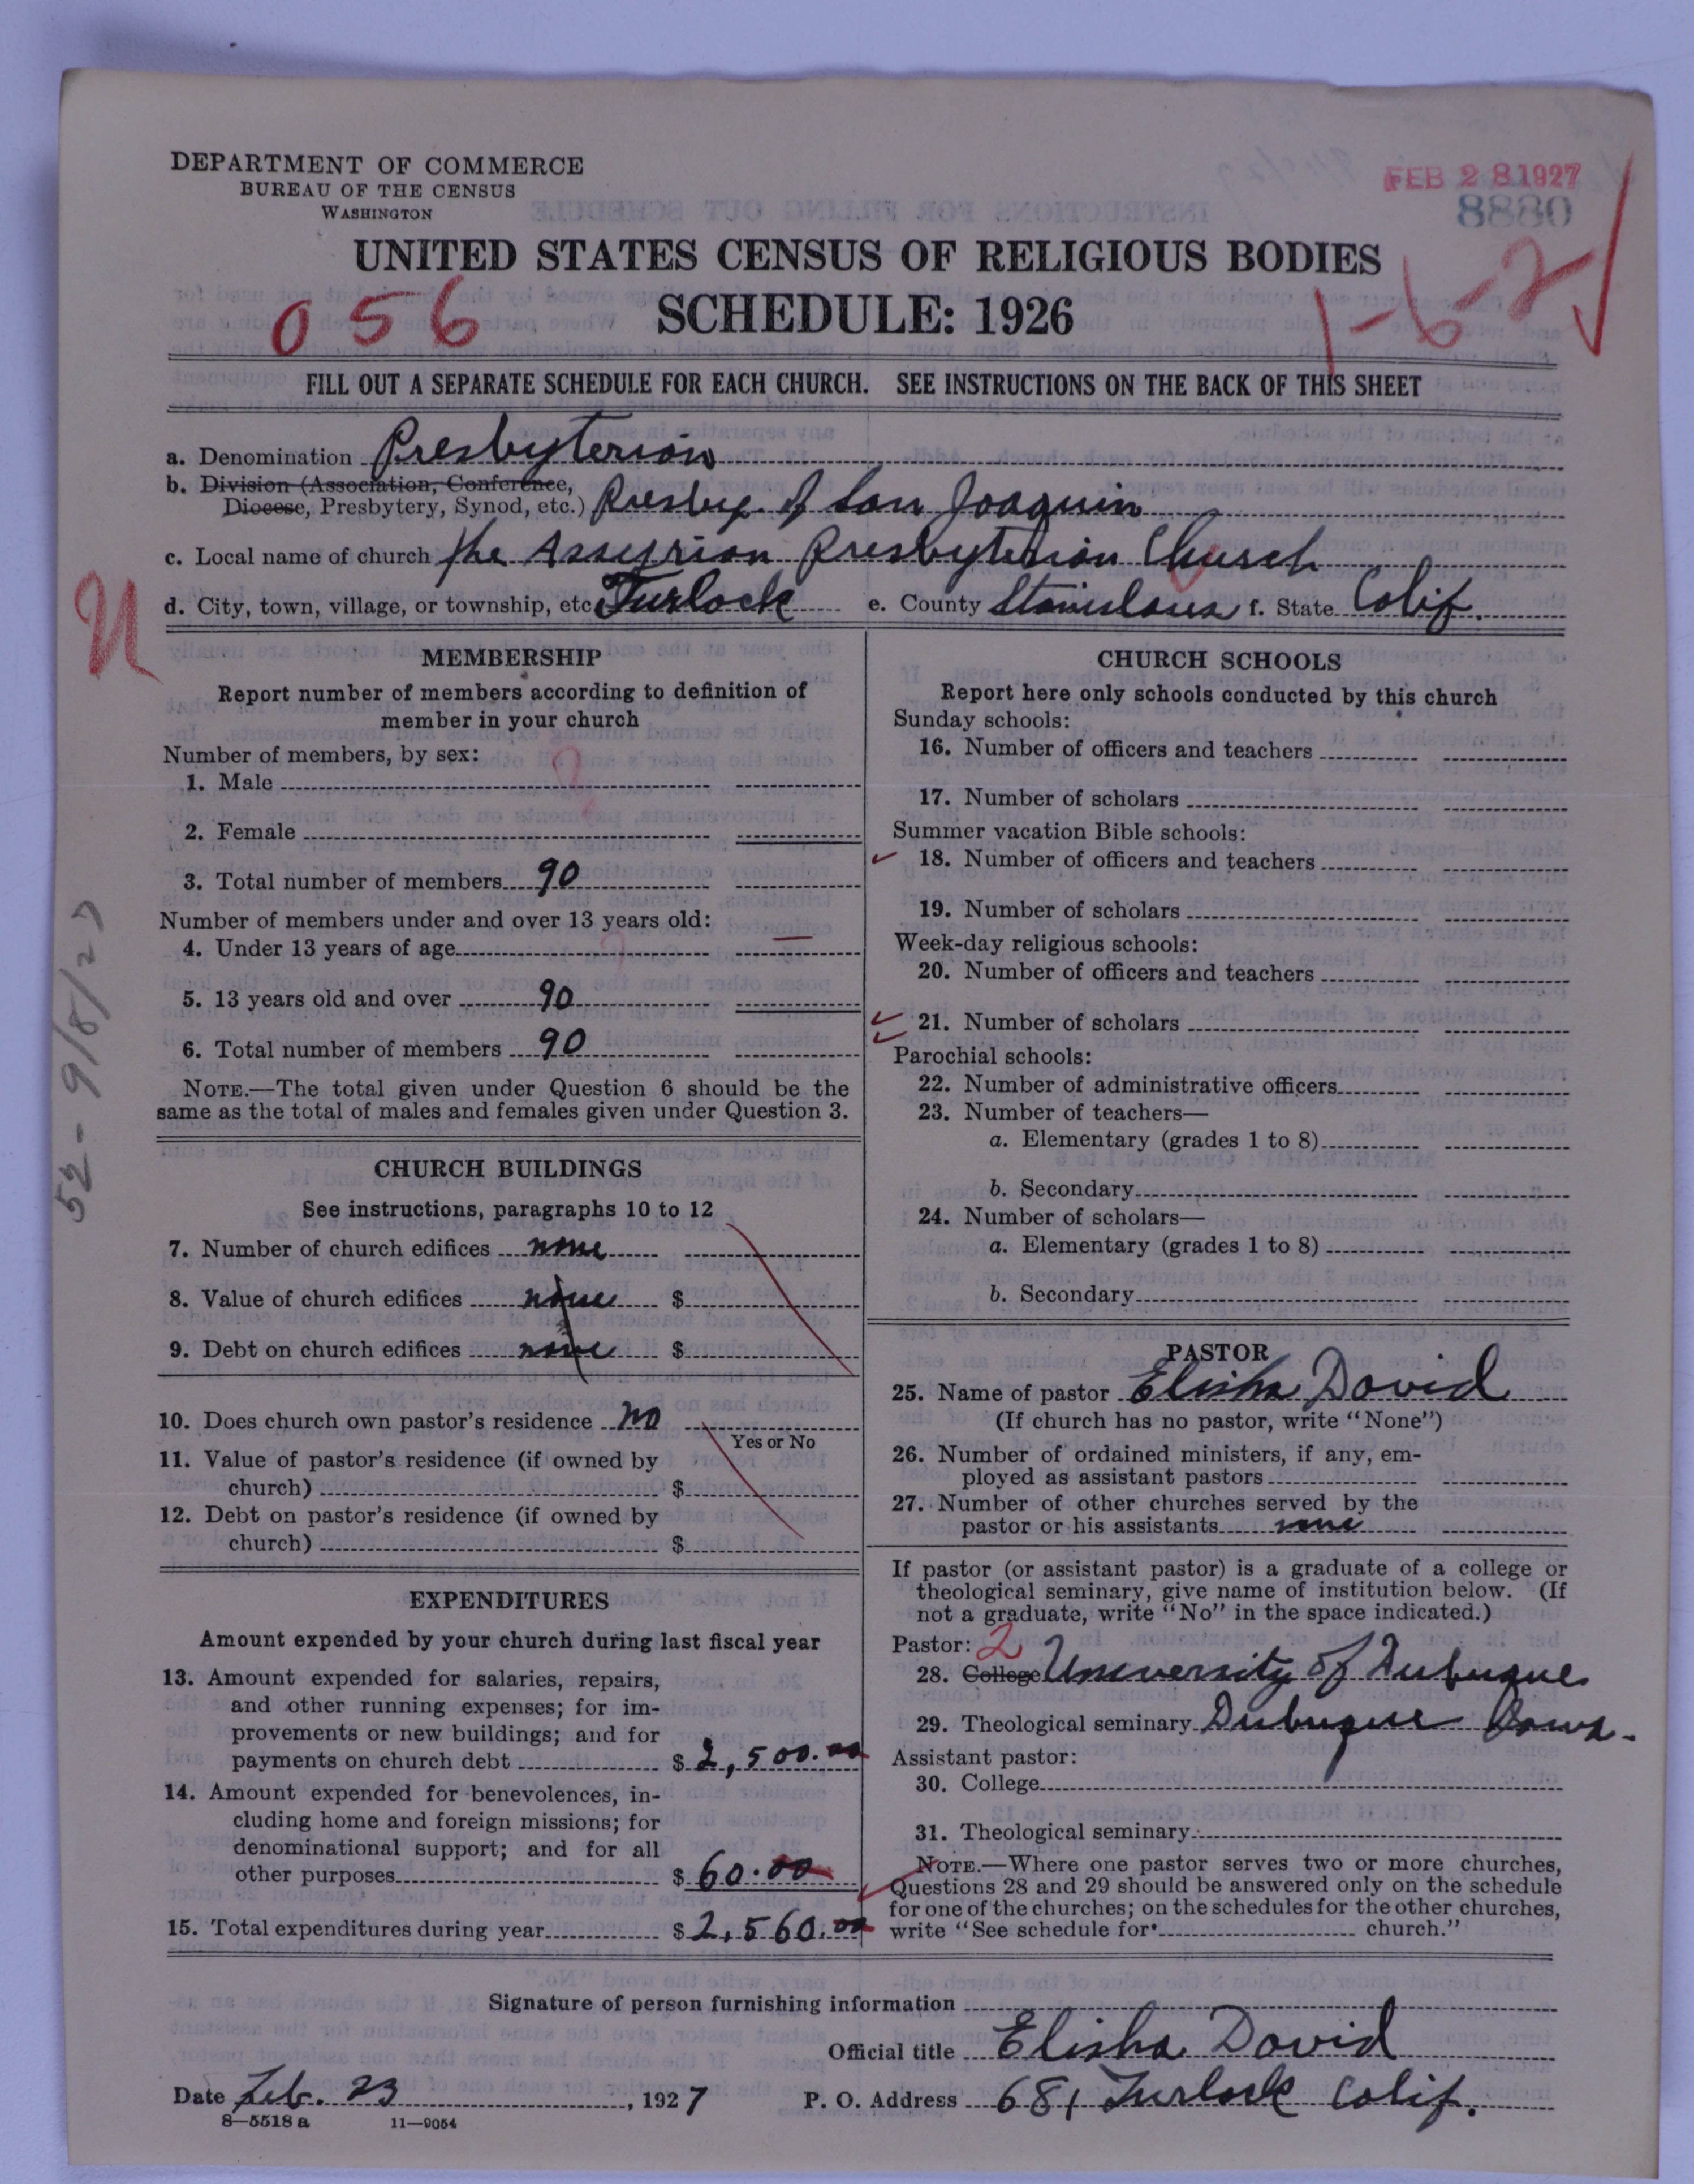 DEPARTMENT OF COMMERCE
BUREAU OF THE CENSUS
WASHINGTON
FEB 28 1927
8880
UNITED STATES CENSUS OF RELIGIOUS BODIES
SCHEDULE: 1926
056
1-6-2
FILL OUT A SEPARATE SCHEDULE FOR EACH CHURCH. SEE INSTRUCTIONS ON THE BACK OF THIS SHEET
a. Denomination Presbyterian
b. Division (Association, Conference,
Diocese, Presbytery, Synod, etc.) Presby. of San Joaquin
c. Local name of church the Assyrian Presbyterian Church
d. City, town, village, or township, etc. Turlock e. County Stanislaus f. State Calif.
MEMBERSHIP
Report number of members according to definition of
member in your church
Number of members, by sex:
1. Male
2. Female
3. Total number of members 90
Number of members under and over 13 years old:
4. Under 13 years of age
5. 13 years old and over 90
6. Total number of members 90
NOTE.—The total given under Question 6 should be the
same as the total of males and females given under Question 3.
52-9/8/27
CHURCH BUILDINGS
See instructions, paragraphs 10 to 12
7. Number of church edifices none
8. Value of church edifices none $
9. Debt on church edifices none $
10. Does church own pastor's residence no
Yes or No
11. Value of pastor's residence (if owned by
church) $
12. Debt on pastor's residence (if owned by
church) $
EXPENDITURES
Amount expended by your church during last fiscal year
13. Amount expended for salaries, repairs,
and other running expenses; for im-
provements or new buildings; and for
payments on church debt $ 2,500.00
14. Amount expended for benevolences, in-
cluding home and foreign missions; for
denominational support; and for all
other purposes $ 60.00
15. Total expenditures during year $ 2,560.00
CHURCH SCHOOLS
Report here only schools conducted by this church
Sunday schools:
16. Number of officers and teachers
17. Number of scholars
Summer vacation Bible schools:
18. Number of officers and teachers
19. Number of scholars
Week-day religious schools:
20. Number of officers and teachers
21. Number of scholars
Parochial schools:
22. Number of administrative officers
23. Number of teachers—
a. Elementary (grades 1 to 8)
b. Secondary
24. Number of scholars—
a. Elementary (grades 1 to 8)
b. Secondary
PASTOR
25. Name of pastor Elisha David
(If church has no pastor, write "None")
26. Number of ordained ministers, if any, em-
ployed as assistant pastors
27. Number of other churches served by the
pastor or his assistants none
If pastor (or assistant pastor) is a graduate of a college or
theological seminary, give name of institution below. (If
not a graduate, write "No" in the space indicated.)
Pastor: 2
28. College University of Dubuque
29. Theological seminary Dubuque Iowa.
Assistant pastor:
30. College
31. Theological seminary
NOTE.—Where one pastor serves two or more churches,
Questions 28 and 29 should be answered only on the schedule
for one of the churches; on the schedules for the other churches,
write "See schedule for church."
Signature of person furnishing information
Official title Elisha David
Date Feb. 23, 1927 P. O. Address 681 Turlock Calif.
8—5518 a 11—9054